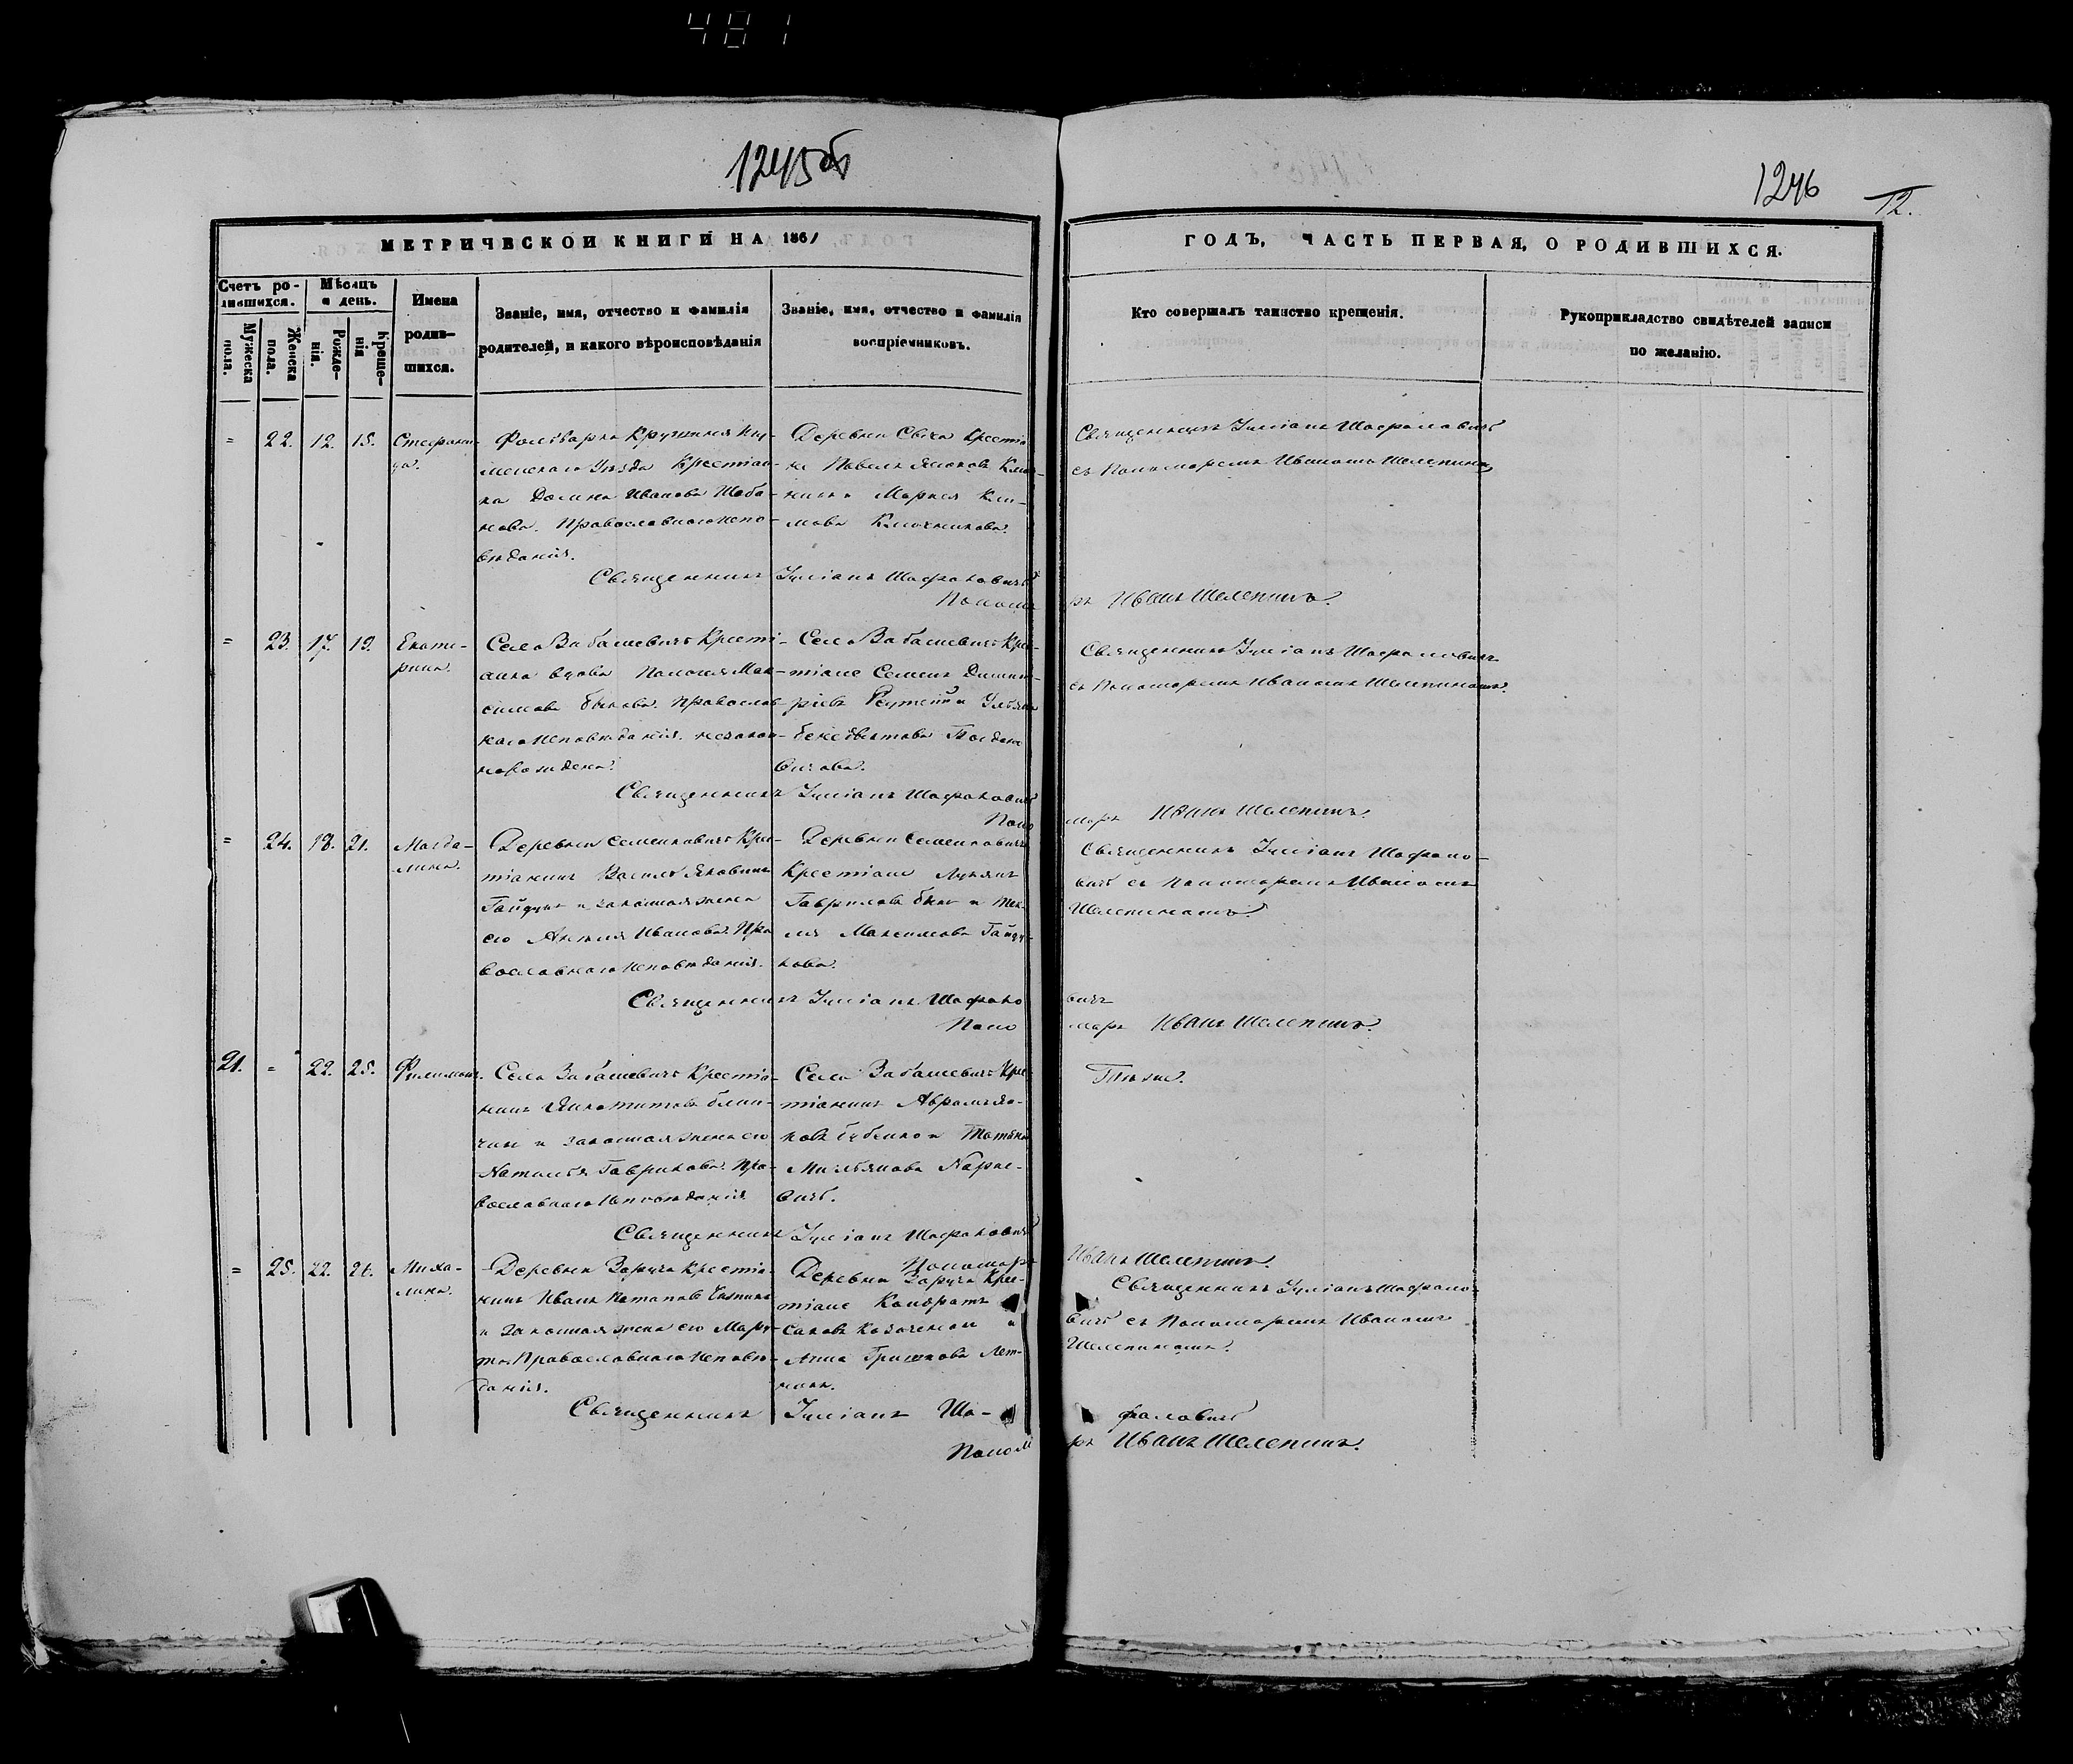 481
1245об
1246
12.
МЕТРИЧЕСКОЙ КНИГИ НА 1861
ГОДЪ, ЧАСТЬ ПЕРВАЯ, О РОДИВШИХСЯ.
Счетъ ро-
дившихся.
Мѣсяцъ
и день.
Имена
родив-
шихся.
Мужеска
пола.
Женска
пола.
Рожде-
нія.
Креще-
нія
Званіе, имя, отчество и фамилія
родителей, и какого вѣроисповѣданія
Званіе, имя, отчество и фамилія
воспріемниковъ.
Кто совершалъ таинство крещенія.
Рукоприкладство свидѣтелей записи
по желанію.
= 22. 12. 15. Стефани-
да.
Фольварка
Крестьян-
ка Домна Иванова Шаба-
нова. Православнаго испо-
вѣданія.
Деревни Свѣча Крестья
не Павелъ
и Марья Кли-
мова Ключникова.
Священникъ Іуліанъ Шафрановичъ
съ Пономаремъ Иваномъ Шелепинымъ
Священникъ Іуліанъ Шафрановичъ
Понома ръ Иванъ Шелепинъ.
= 23. 17. 19. Екате-
рина.
Села Забашевичъ Кресть
анка вдова Мак-
симова Быкова. Православ
наго исповѣданія. незакон-
норождена.
Села Забашевичъ Кре-
стьяне Семенъ Димит-
ріевъ и Ульяна
Бенедиктова Богдано
вичова.
Священникъ Іуліанъ Шафрановичъ
съ Пономаремъ Иваномъ Шелепинымъ.
Священникъ Іуліанъ Шафрановичъ
Поно марь Иванъ Шелепинъ.
= 24. 18. 21. Магда-
лина.
Деревни Семенковичъ Кре-
стьянинъ Василь Яковинъ
Гайдукъ и законная жена
его Анна Иванова. Пра
вославнаго исповѣданія.
Деревни Семенковичъ
Крестьяне Лукьянъ
Гавриловъ Быкъ и Тек-
ля Максимова Гайду-
кова.
Священникъ Іуліанъ Шафрано-
вичъ съ Пономаремъ Иваномъ
Шелепинымъ.
Священникъ Іуліанъ Шафрано
вичъ
Поно марь Иванъ Шелепинъ.
21. = 22. 25. Филимонъ.
Села Забашевичъ Крестья-
нинъ
и законная жена его
Наталья Гаврилова. Пра-
вославнаго исповѣданія.
Села Забашевичъ Кре
стьянинъ Аврамъ Яко-
въ Бубенко и Татьяна

вичъ.
Тѣже.
Священникъ Іуліанъ Шафрановичъ
Пономарь Иванъ Шелепинъ.
= 25. 22. 26. Миха-
лина.
Деревни Заруча Крестья-
нинъ Иванъ Потаповъ
и законная жена его Мар-
та Православнаго исповѣ-
данія.
Деревни Заруча Крес-
тьяне Кондратъ

Анна
Священникъ Іуліанъ Шафрано-
вичъ съ Пономаремъ Иваномъ
Шелепинымъ.
Священникъ Іуліанъ Ша- франовичъ
Поном ръ Иванъ Шелепинъ.